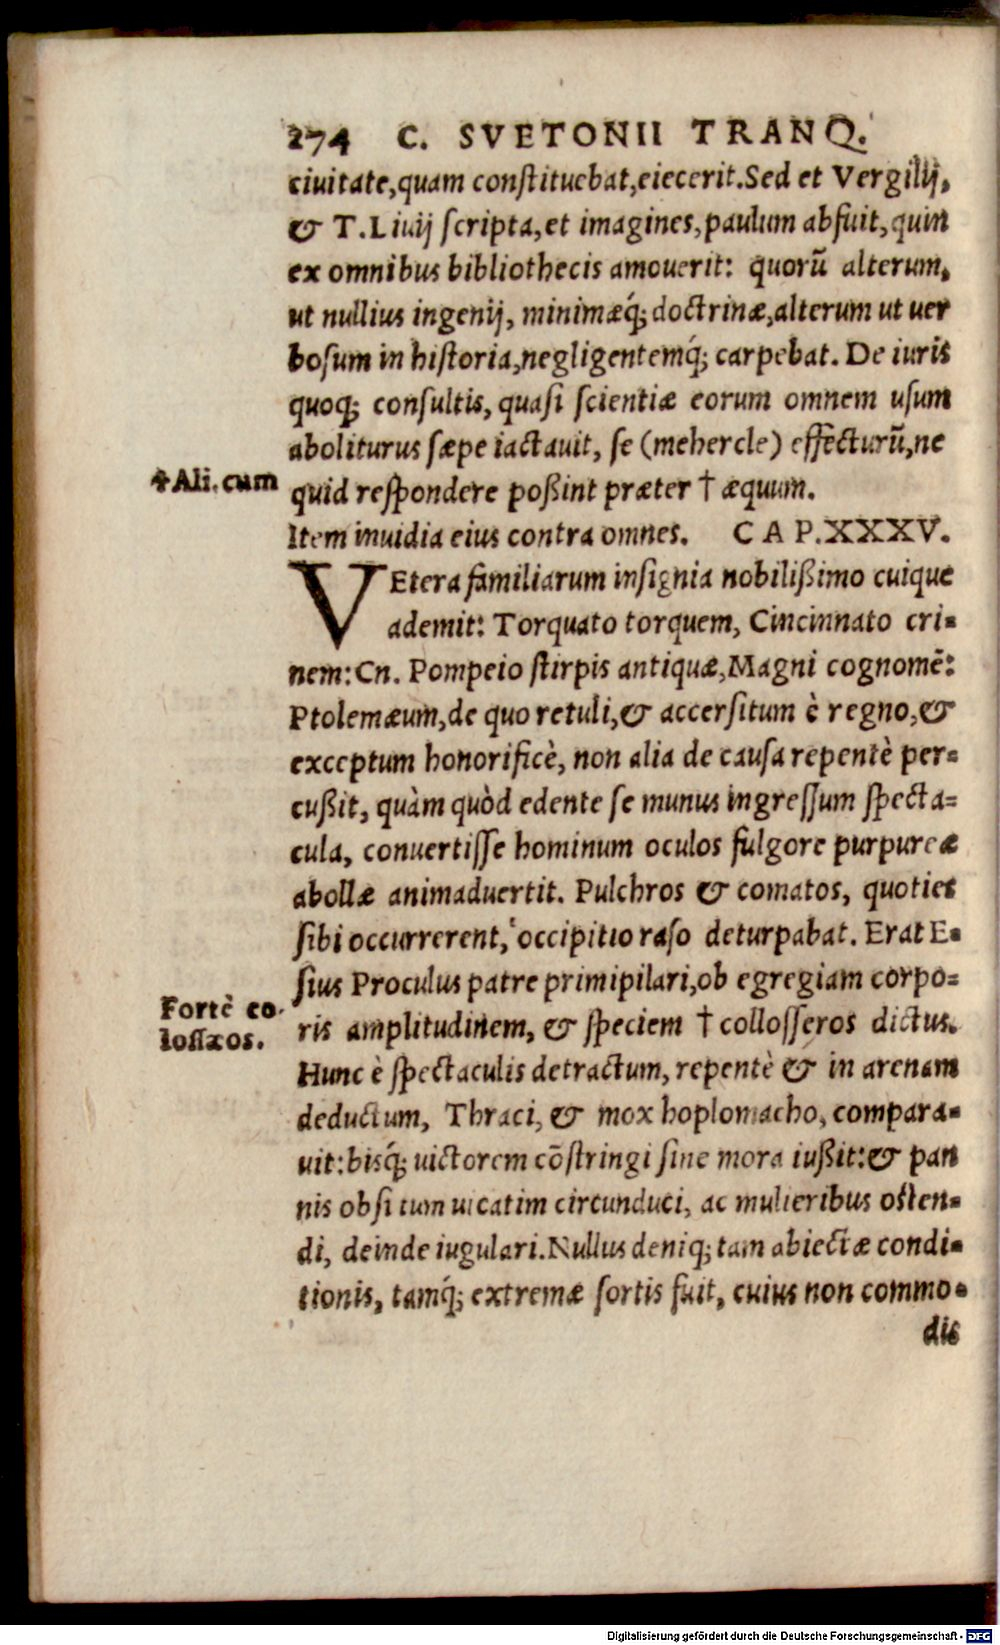 274 C. SVETONII TRANQ.
ciuitate, quam constituebat, eiecerit. Sed et Vergilij,
& T. Liuij scripta, et imagines, paulum abfuit, quin
ex omnibus bibliothecis amouerit: quorū alterum,
ut nullius ingenij, minimæq́; doctrinæ, alterum ut uer
bosum in historia, negligentemq́; carpebat. De iuris
quoq; consultis, quasi scientiæ eorum omnem usum
aboliturus sæpe iactauit, se (mehercle) effecturū, ne
✝Ali. cum
quid respondere poßint præter † æquum.
Item inuidia eius contra omnes. CAP. XXXV.
VEtera familiarum insignia nobilißimo cuique
ademit: Torquato torquem, Cincinnato cri=
nem: Cn. Pompeio stirpis antiquæ, Magni cognomē:
Ptolemæum, de quo retuli, & accersitum è regno, &
exceptum honorificè, non alia de causa repentè per=
cußit, quàm quòd edente se munus ingressum specta=
cula, conuertisse hominum oculos fulgore purpureæ
abollæ animaduertit. Pulchros & comatos, quoties
sibi occurrerent, occipitio raso deturpabat. Erat E=
sius Proculus patre primipilari, ob egregiam corpo=
Fortè co
losiæos.
ris amplitudinem, & speciem † collosseros dictus.
Hunc è spectaculis detractum, repentè & in arenam
deductum, Thraci, & mox hoplomacho, compara=
uit: bisq́; uictorem cōstringi sine mora iußit: & pan
nis obsitum uicatim circunduci, ac mulieribus osten=
di, deinde iugulari. Nullus deniq; tam abiectæ condi=
tionis, tamq́; extremæ sortis fuit, cuius non commo=
dis
Digitalisierung gefördert durch die Deutsche Forschungsgemeinschaft - DFG